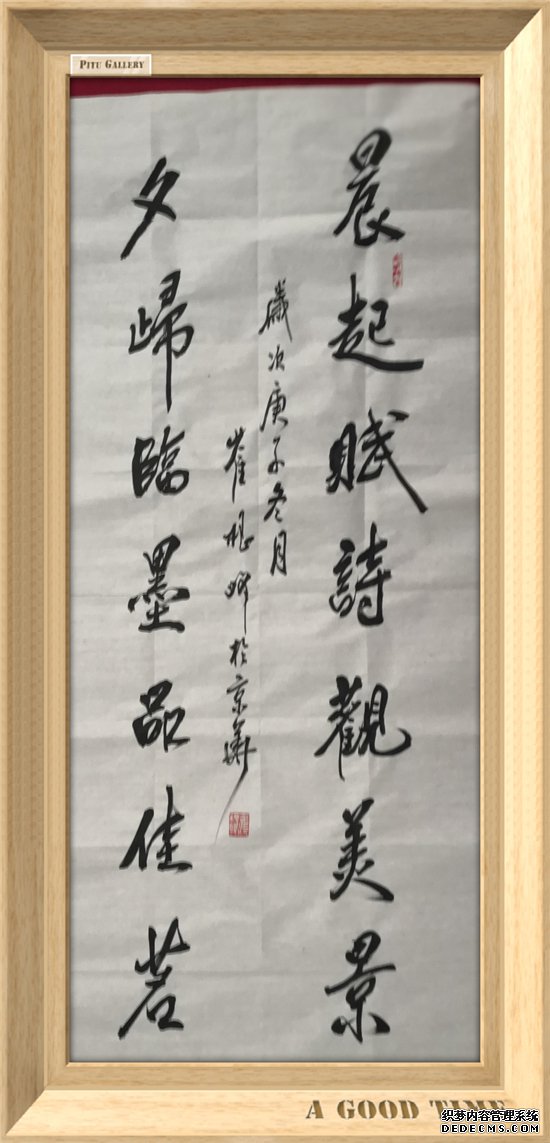 PITU GALLERY
晨起賦詩觀美景
歲次庚子冬月
崔 於京華
夕歸臨墨品佳茗
A GOOD TIME
织梦内容管理系统
DEDECMS.COM